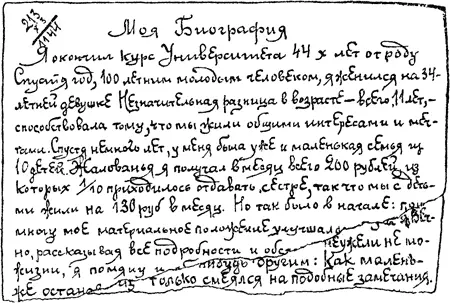 Моя Биография
Я окончил курс Университета 44 х лет от роду
Спустя год, 100 летним молодым человеком, я женился на 34-
летней девушке Незначительная разница в возрасте — всего 11 лет, —
способствовала тому, что мы жили общими интересами и меч-
тами. Спустя немного лет, у меня была уже и маленькая семья из
10 детей. Жалованья я получал в месяц всего 200 рублей, из
которых 1/10 приходилось отдавать, сестре, так что мы с деть-
ми жили на 130 руб в месяц. Но так было в начале:
многу мое материальное положение улучшало
но, рассказывая все подробности и неужели не мо-
жизни, я помяну и нибудь другим: Как малень-
же останов из только смеялся на подобные замечания.